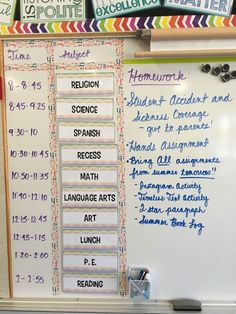 IS POLITE
EXCELLENCE
MATTER
Time Subject
Homework
8 - 8:45 RELIGION
8:45 - 9:25 SCIENCE
9:30 - 10 SPANISH
10 - 10:30 RECESS
10:35 - 11:35 MATH
11:40 - 12:10 LANGUAGE ARTS
12:15 - 12:45 ART
12:45 - 1:15 LUNCH
1:20 - 2:00 P.E.
2 - 2:55 READING
Student Accident and
Sickness Coverage
- give to parents!
Hands Assignment
Bring All assignments
from summer tomorrow!!
- Instagram Activity
- Timeless Text Activity
- 2 star paragraph
- Summer Book Log